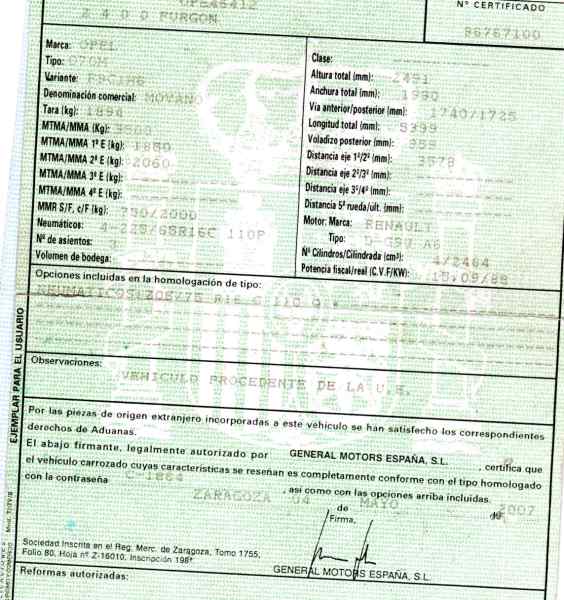 Nº CERTIFICADO
2 4 0 0 FURGON
96767100
Marca: OPEL
Tipo: O70M
Variante: F9C1H6
Denominación comercial: MOVANO
Tara (kg): 1894
MTMA/MMA (Kg): 3500
MTMA/MMA 1º E (kg): 1850
MTMA/MMA 2º E (kg): 2060
MTMA/MMA 3º E (kg):
MTMA/MMA 4º E (kg):
MMR S/F, c/F (kg): 750/2000
Neumáticos: 4-225/65R16C 110P
Nº de asientos: 3
Volumen de bodega:
Clase:
Altura total (mm): 2491
Anchura total (mm): 1990
Vía anterior/posterior (mm): 1740/1725
Longitud total (mm): 5399
Voladizo posterior (mm): 959
Distancia eje 1º/2º (mm): 3578
Distancia eje 2º/3º (mm):
Distancia eje 3º/4º (mm):
Distancia 5ª rueda/ult. (mm):
Motor: Marca: RENAULT
Tipo: D-G9U A6
Nº Cilindros/Cilindrada (cm³): 4/2464
Potencia fiscal/real (C.V.F/KW): 15.09/88
Opciones incluidas en la homologación de tipo:
NEUMATICOS:205/75 R16 C 110 Q.
Observaciones:
VEHICULO PROCEDENTE DE LA U.E.
EJEMPLAR PARA EL USUARIO
Por las piezas de origen extranjero incorporadas a este vehículo se han satisfecho los correspondientes
derechos de Aduanas.
El abajo firmante, legalmente autorizado por GENERAL MOTORS ESPAÑA, S.L. , certifica que
el vehículo carrozado cuyas características se reseñan es completamente conforme con el tipo homologado
con la contraseña C-1884 , así como con las opciones arriba incluidas.
ZARAGOZA 04 de MAYO 2007
Firma,
Sociedad Inscrita en el Reg. Merc. de Zaragoza, Tomo 1755,
Folio 80, Hoja nº Z-16010, Inscripción 198ª
GENERAL MOTORS ESPAÑA, S.L.
Reformas autorizadas: